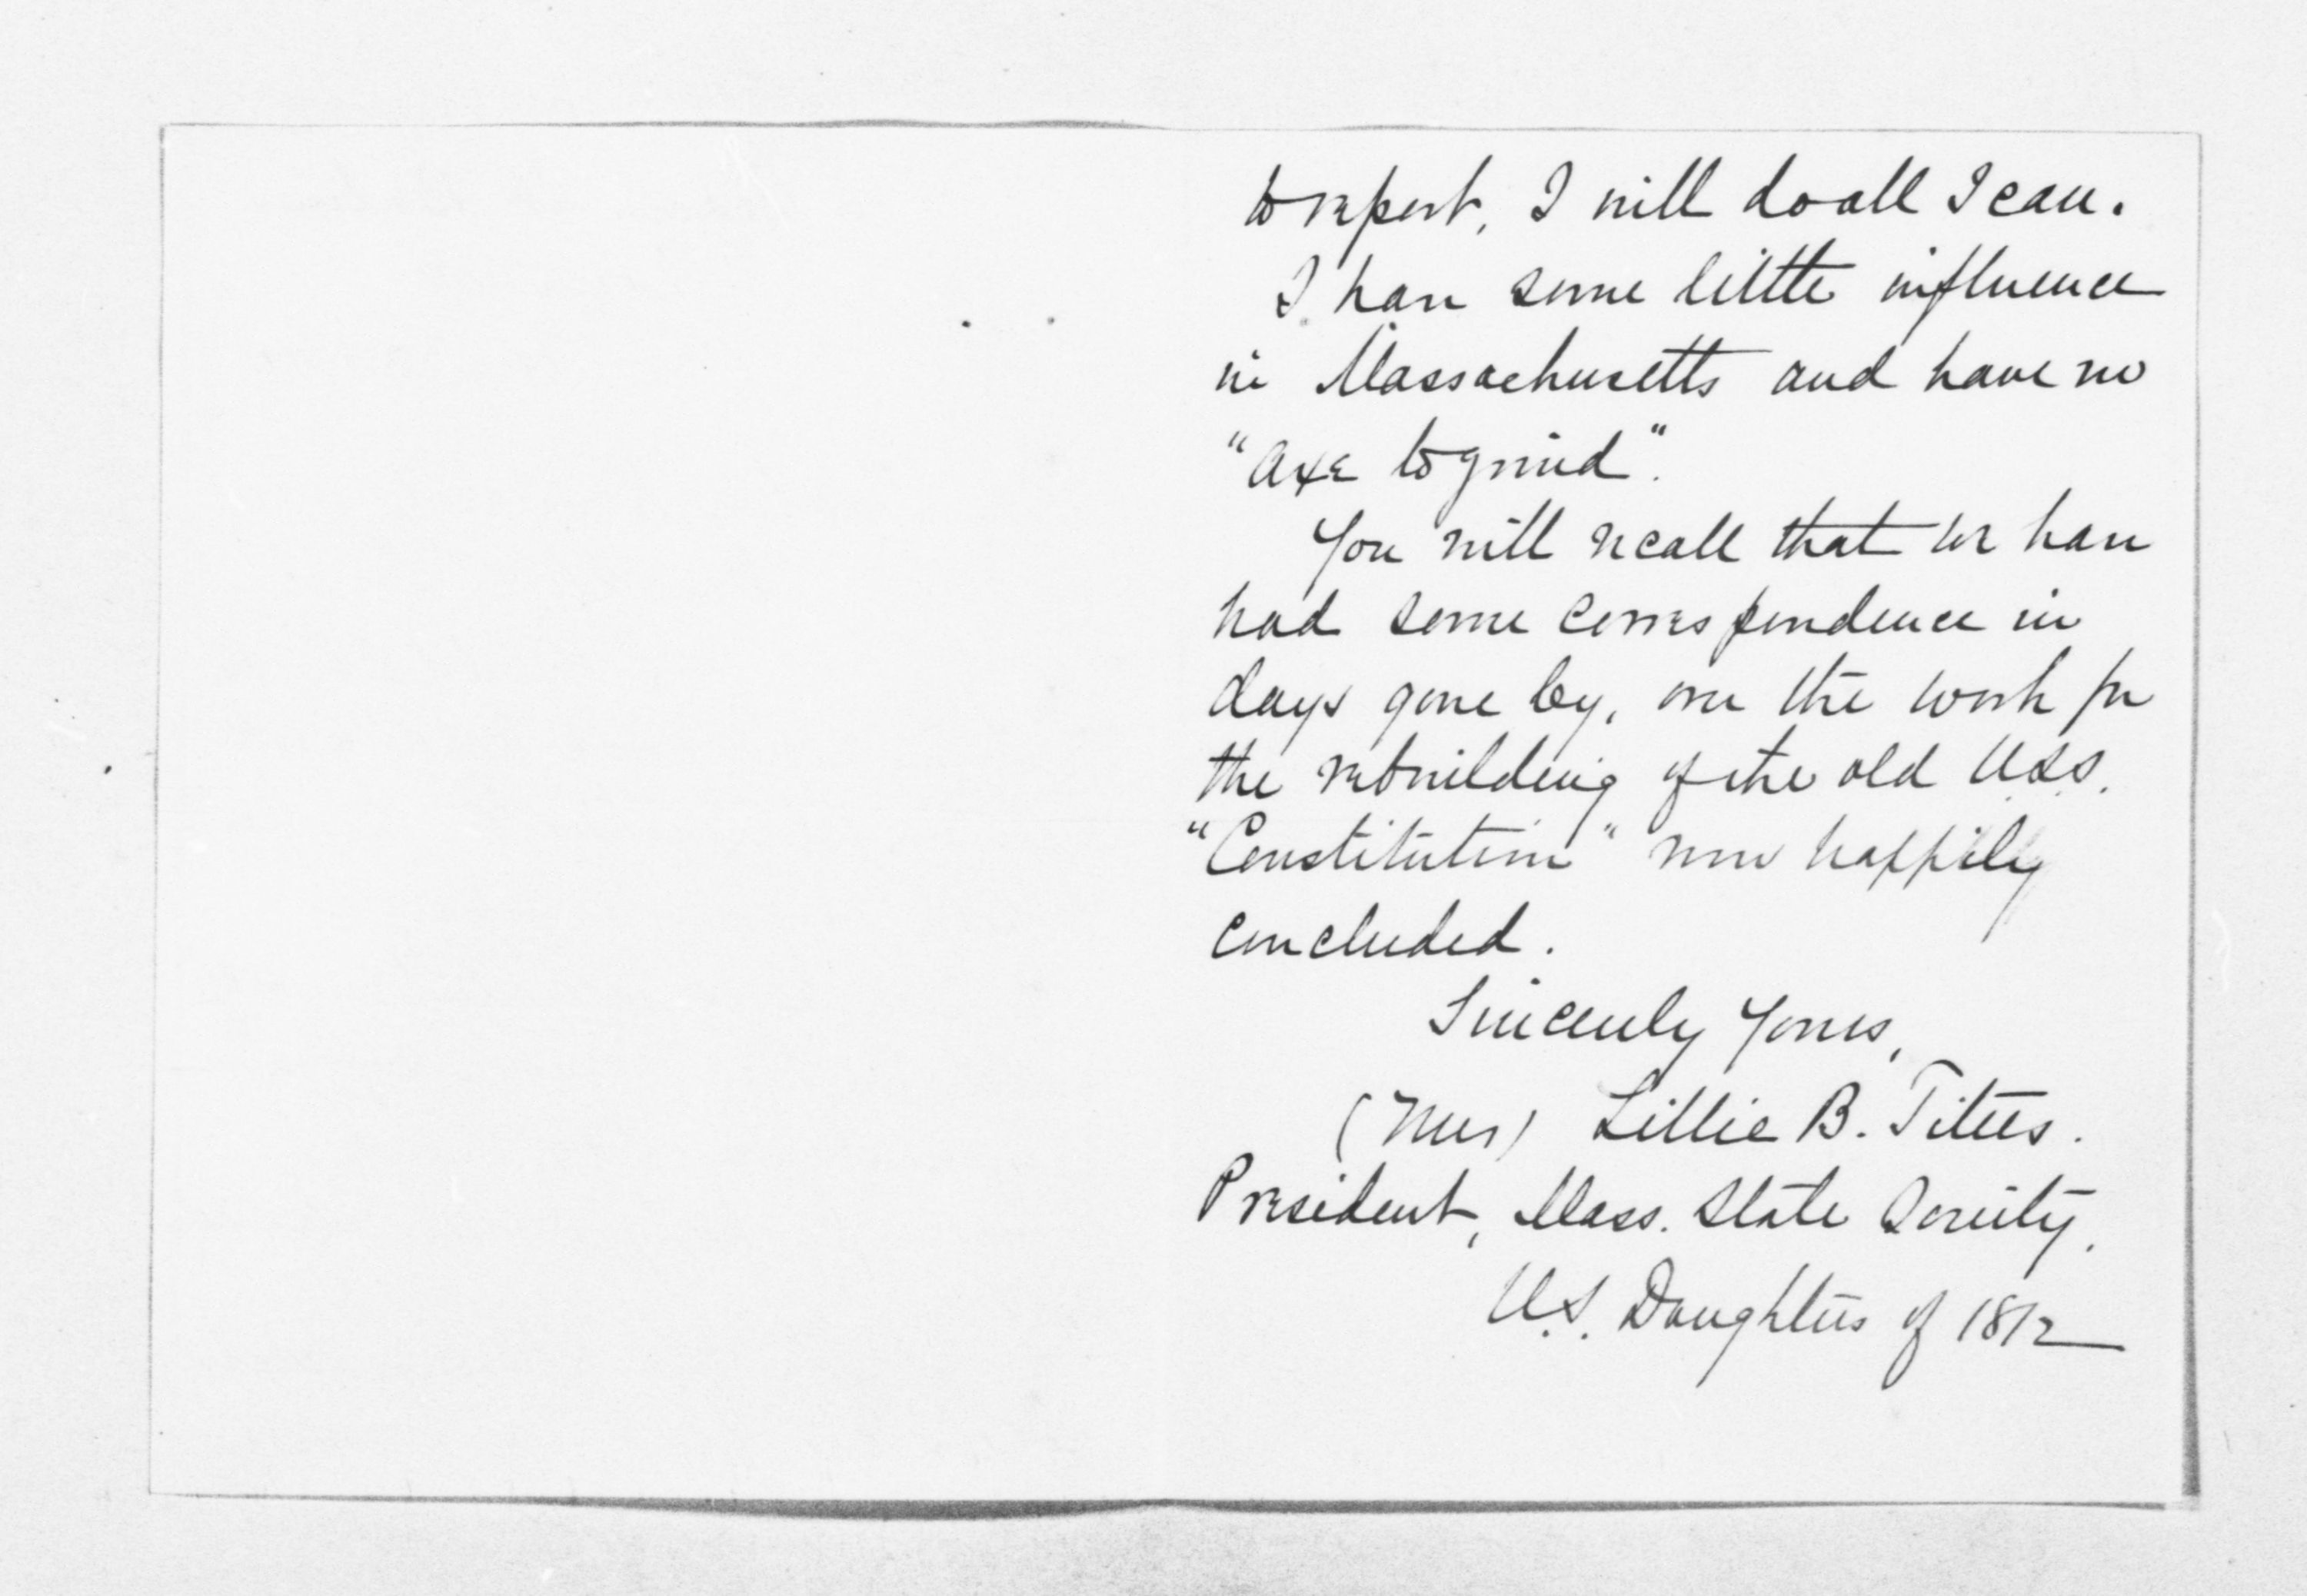 to report, I will do all I can.
I have some little influence
in Massachusetts and have no
"axe to grind".
You will recall that we have
had some correspondence in
days gone by, over the work for
the rebuilding of the old U.S.S.
"Constitution" now happily
concluded.
Sincerely Yours,
(Mrs) Lillie B. Titus.
President, Mass. State Society,
U.S. Daughters of 1812